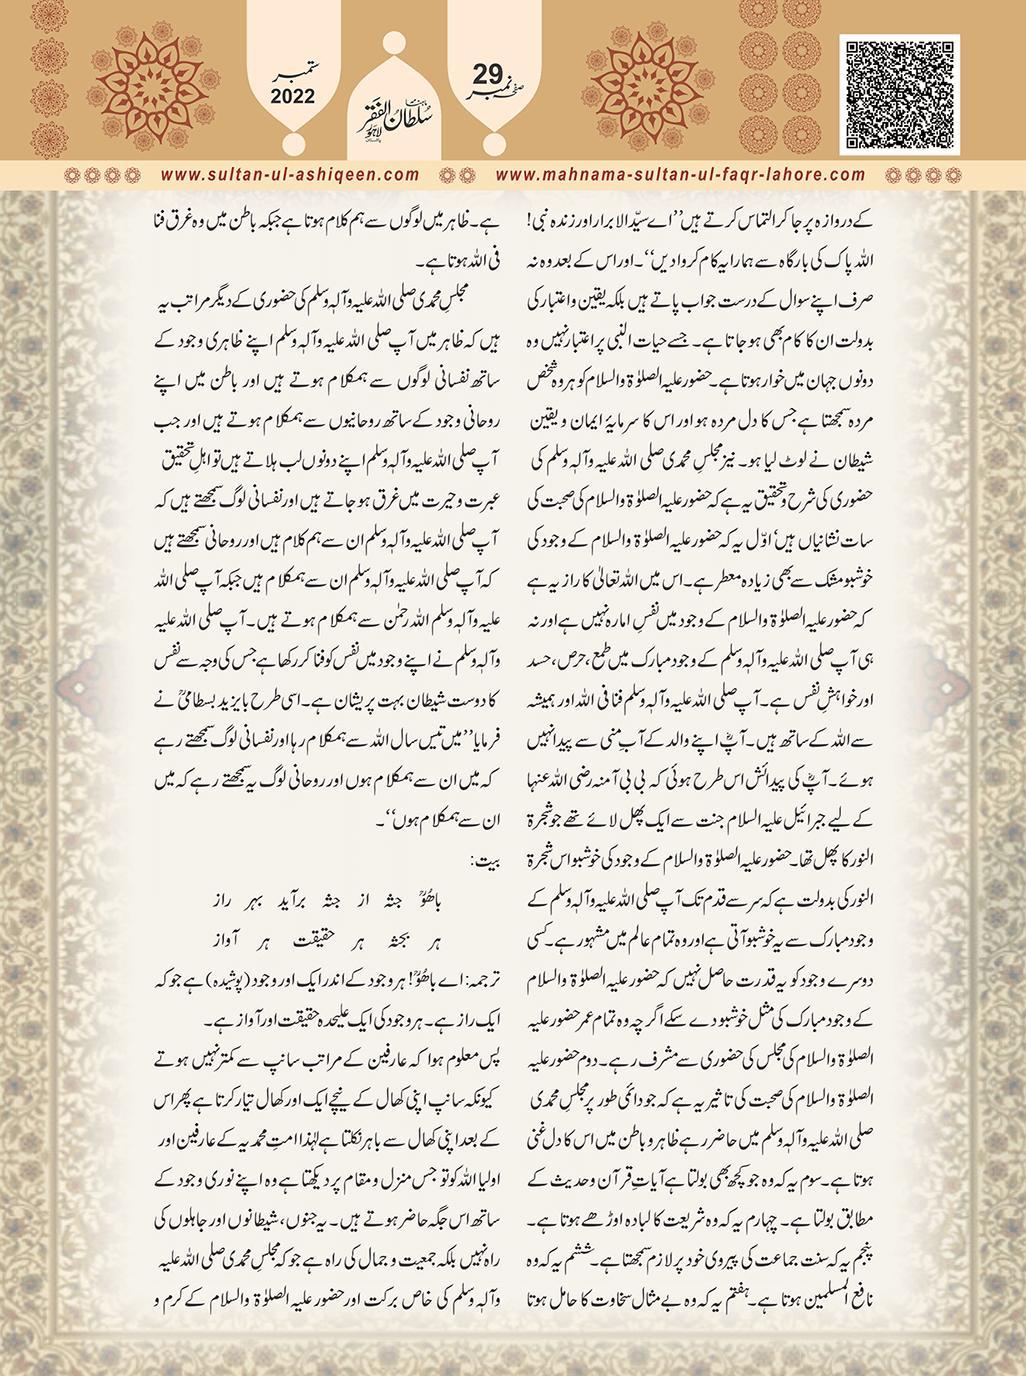 ستمبر
2022
ماہنامہ سلطان الفقر لاہور
صفحہ نمبر 29
www.sultan-ul-ashiqeen.com
www.mahnama-sultan-ul-faqr-lahore.com
کے دروازہ پر جا کر التماس کرتے ہیں ’’اے سیّد الابرار اور زندہ نبی!
اللہ پاک کی بارگاہ سے ہمارا یہ کام کروا دیں‘‘۔ اور اس کے بعد وہ نہ
صرف اپنے سوال کے درست جواب پاتے ہیں بلکہ یقین و اعتبار کی
بدولت ان کا کام بھی ہو جاتا ہے۔ جسے حیات النبی پر اعتبار نہیں وہ
دونوں جہان میں خوار ہوتا ہے۔ حضور علیہ الصلوٰۃ والسلام کو ہر وہ شخص
مردہ سمجھتا ہے جس کا دل مردہ ہو اور اس کا سرمایۂ ایمان و یقین
شیطان نے لوٹ لیا ہو۔ نیز مجلسِ محمدی صلی اللہ علیہ وآلہٖ وسلم کی
حضوری کی شرح و تحقیق یہ ہے کہ حضور علیہ الصلوٰۃ والسلام کی صحبت کی
سات نشانیاں ہیں‘ اوّل یہ کہ حضور علیہ الصلوٰۃ والسلام کے وجود کی
خوشبو مشک سے بھی زیادہ معطر ہے۔ اس میں اللہ تعالیٰ کا راز یہ ہے
کہ حضور علیہ الصلوٰۃ والسلام کے وجود میں نفسِ امارہ نہیں ہے اور نہ
ہی آپ صلی اللہ علیہ وآلہٖ وسلم کے وجود مبارک میں طمع، حرص، حسد
اور خواہشِ نفس ہے۔ آپ صلی اللہ علیہ وآلہٖ وسلم فنا فی اللہ اور ہمیشہ
سے اللہ کے ساتھ ہیں۔ آپؐ اپنے والد کے آبِ منی سے پیدا نہیں
ہوئے۔ آپؐ کی پیدائش اس طرح ہوئی کہ بی بی آمنہ رضی اللہ عنہا
کے لیے جبرائیل علیہ السلام جنت سے ایک پھل لائے تھے جو شجرۃ
النور کا پھل تھا۔ حضور علیہ الصلوٰۃ والسلام کے وجود کی خوشبو اس شجرۃ
النور کی بدولت ہے کہ سر سے قدم تک آپ صلی اللہ علیہ وآلہٖ وسلم کے
وجود مبارک سے یہ خوشبو آتی ہے اور وہ تمام عالم میں مشہور ہے۔ کسی
دوسرے وجود کو یہ قدرت حاصل نہیں کہ حضور علیہ الصلوٰۃ والسلام
کے وجود مبارک کی مثل خوشبو دے سکے اگرچہ وہ تمام عمر حضور علیہ
الصلوٰۃ والسلام کی مجلس کی حضوری سے مشرف رہے۔ دوم حضور علیہ
الصلوٰۃ والسلام کی صحبت کی تاثیر یہ ہے کہ جو دائمی طور پر مجلسِ محمدی
صلی اللہ علیہ وآلہٖ وسلم میں حاضر رہے ظاہر و باطن میں اس کا دل غنی
ہوتا ہے۔ سوم یہ کہ وہ جو کچھ بھی بولتا ہے آیاتِ قرآن و حدیث کے
مطابق بولتا ہے۔ چہارم یہ کہ وہ شریعت کا لبادہ اوڑھے ہوتا ہے۔
پنجم یہ کہ سنت جماعت کی پیروی خود پر لازم سمجھتا ہے۔ ششم یہ کہ وہ
نافع المسلمین ہوتا ہے۔ ہفتم یہ کہ وہ بے مثال سخاوت کا حامل ہوتا
ہے۔ ظاہر میں لوگوں سے ہم کلام ہوتا ہے جبکہ باطن میں وہ غرق فنا
فی اللہ ہوتا ہے۔
مجلسِ محمدی صلی اللہ علیہ وآلہٖ وسلم کی حضوری کے دیگر مراتب یہ
ہیں کہ ظاہر میں آپ صلی اللہ علیہ وآلہٖ وسلم اپنے ظاہری وجود کے
ساتھ نفسانی لوگوں سے ہمکلام ہوتے ہیں اور باطن میں اپنے
روحانی وجود کے ساتھ روحانیوں سے ہمکلام ہوتے ہیں اور جب
آپ صلی اللہ علیہ وآلہٖ وسلم اپنے دونوں لب ہلاتے ہیں تو اہلِ تحقیق
عبرت و حیرت میں غرق ہو جاتے ہیں اور نفسانی لوگ سمجھتے ہیں کہ
آپ صلی اللہ علیہ وآلہٖ وسلم ان سے ہم کلام ہیں اور روحانی سمجھتے ہیں
کہ آپ صلی اللہ علیہ وآلہٖ وسلم ان سے ہمکلام ہیں جبکہ آپ صلی اللہ
علیہ وآلہٖ وسلم اللہ رحمٰن سے ہمکلام ہوتے ہیں۔ آپ صلی اللہ علیہ
وآلہٖ وسلم نے اپنے وجود میں نفس کو فنا کر رکھا ہے جس کی وجہ سے نفس
کا دوست شیطان بہت پریشان ہے۔ اسی طرح بایزید بسطامیؒ نے
فرمایا ’’میں تیس سال اللہ سے ہمکلام رہا اور نفسانی لوگ سمجھتے رہے
کہ میں ان سے ہمکلام ہوں اور روحانی لوگ یہ سمجھتے رہے کہ میں
ان سے ہمکلام ہوں‘‘۔
بیت:
باھُوؒ جثہ از جثہ برآید بہر راز
ہر بجثہ ہر حقیقت ہر آواز
ترجمہ: اے باھُوؒ! ہر وجود کے اندر ایک اور وجود (پوشیدہ) ہے جو کہ
ایک راز ہے۔ ہر وجود کی ایک علیحدہ حقیقت اور آواز ہے۔
پس معلوم ہوا کہ عارفین کے مراتب سانپ سے کمتر نہیں ہوتے
کیونکہ سانپ اپنی کھال کے نیچے ایک اور کھال تیار کرتا ہے پھر اس
کے بعد اپنی کھال سے باہر نکلتا ہے لہٰذا امتِ محمدیہ کے عارفین اور
اولیا اللہ کو تو جس منزل و مقام پر دیکھتا ہے وہ اپنے نوری وجود کے
ساتھ اس جگہ حاضر ہوتے ہیں۔ یہ جنوں، شیطانوں اور جاہلوں کی
راہ نہیں بلکہ جمعیت و جمال کی راہ ہے جو کہ مجلسِ محمدی صلی اللہ علیہ
وآلہٖ وسلم کی خاص برکت اور حضور علیہ الصلوٰۃ والسلام کے کرم و